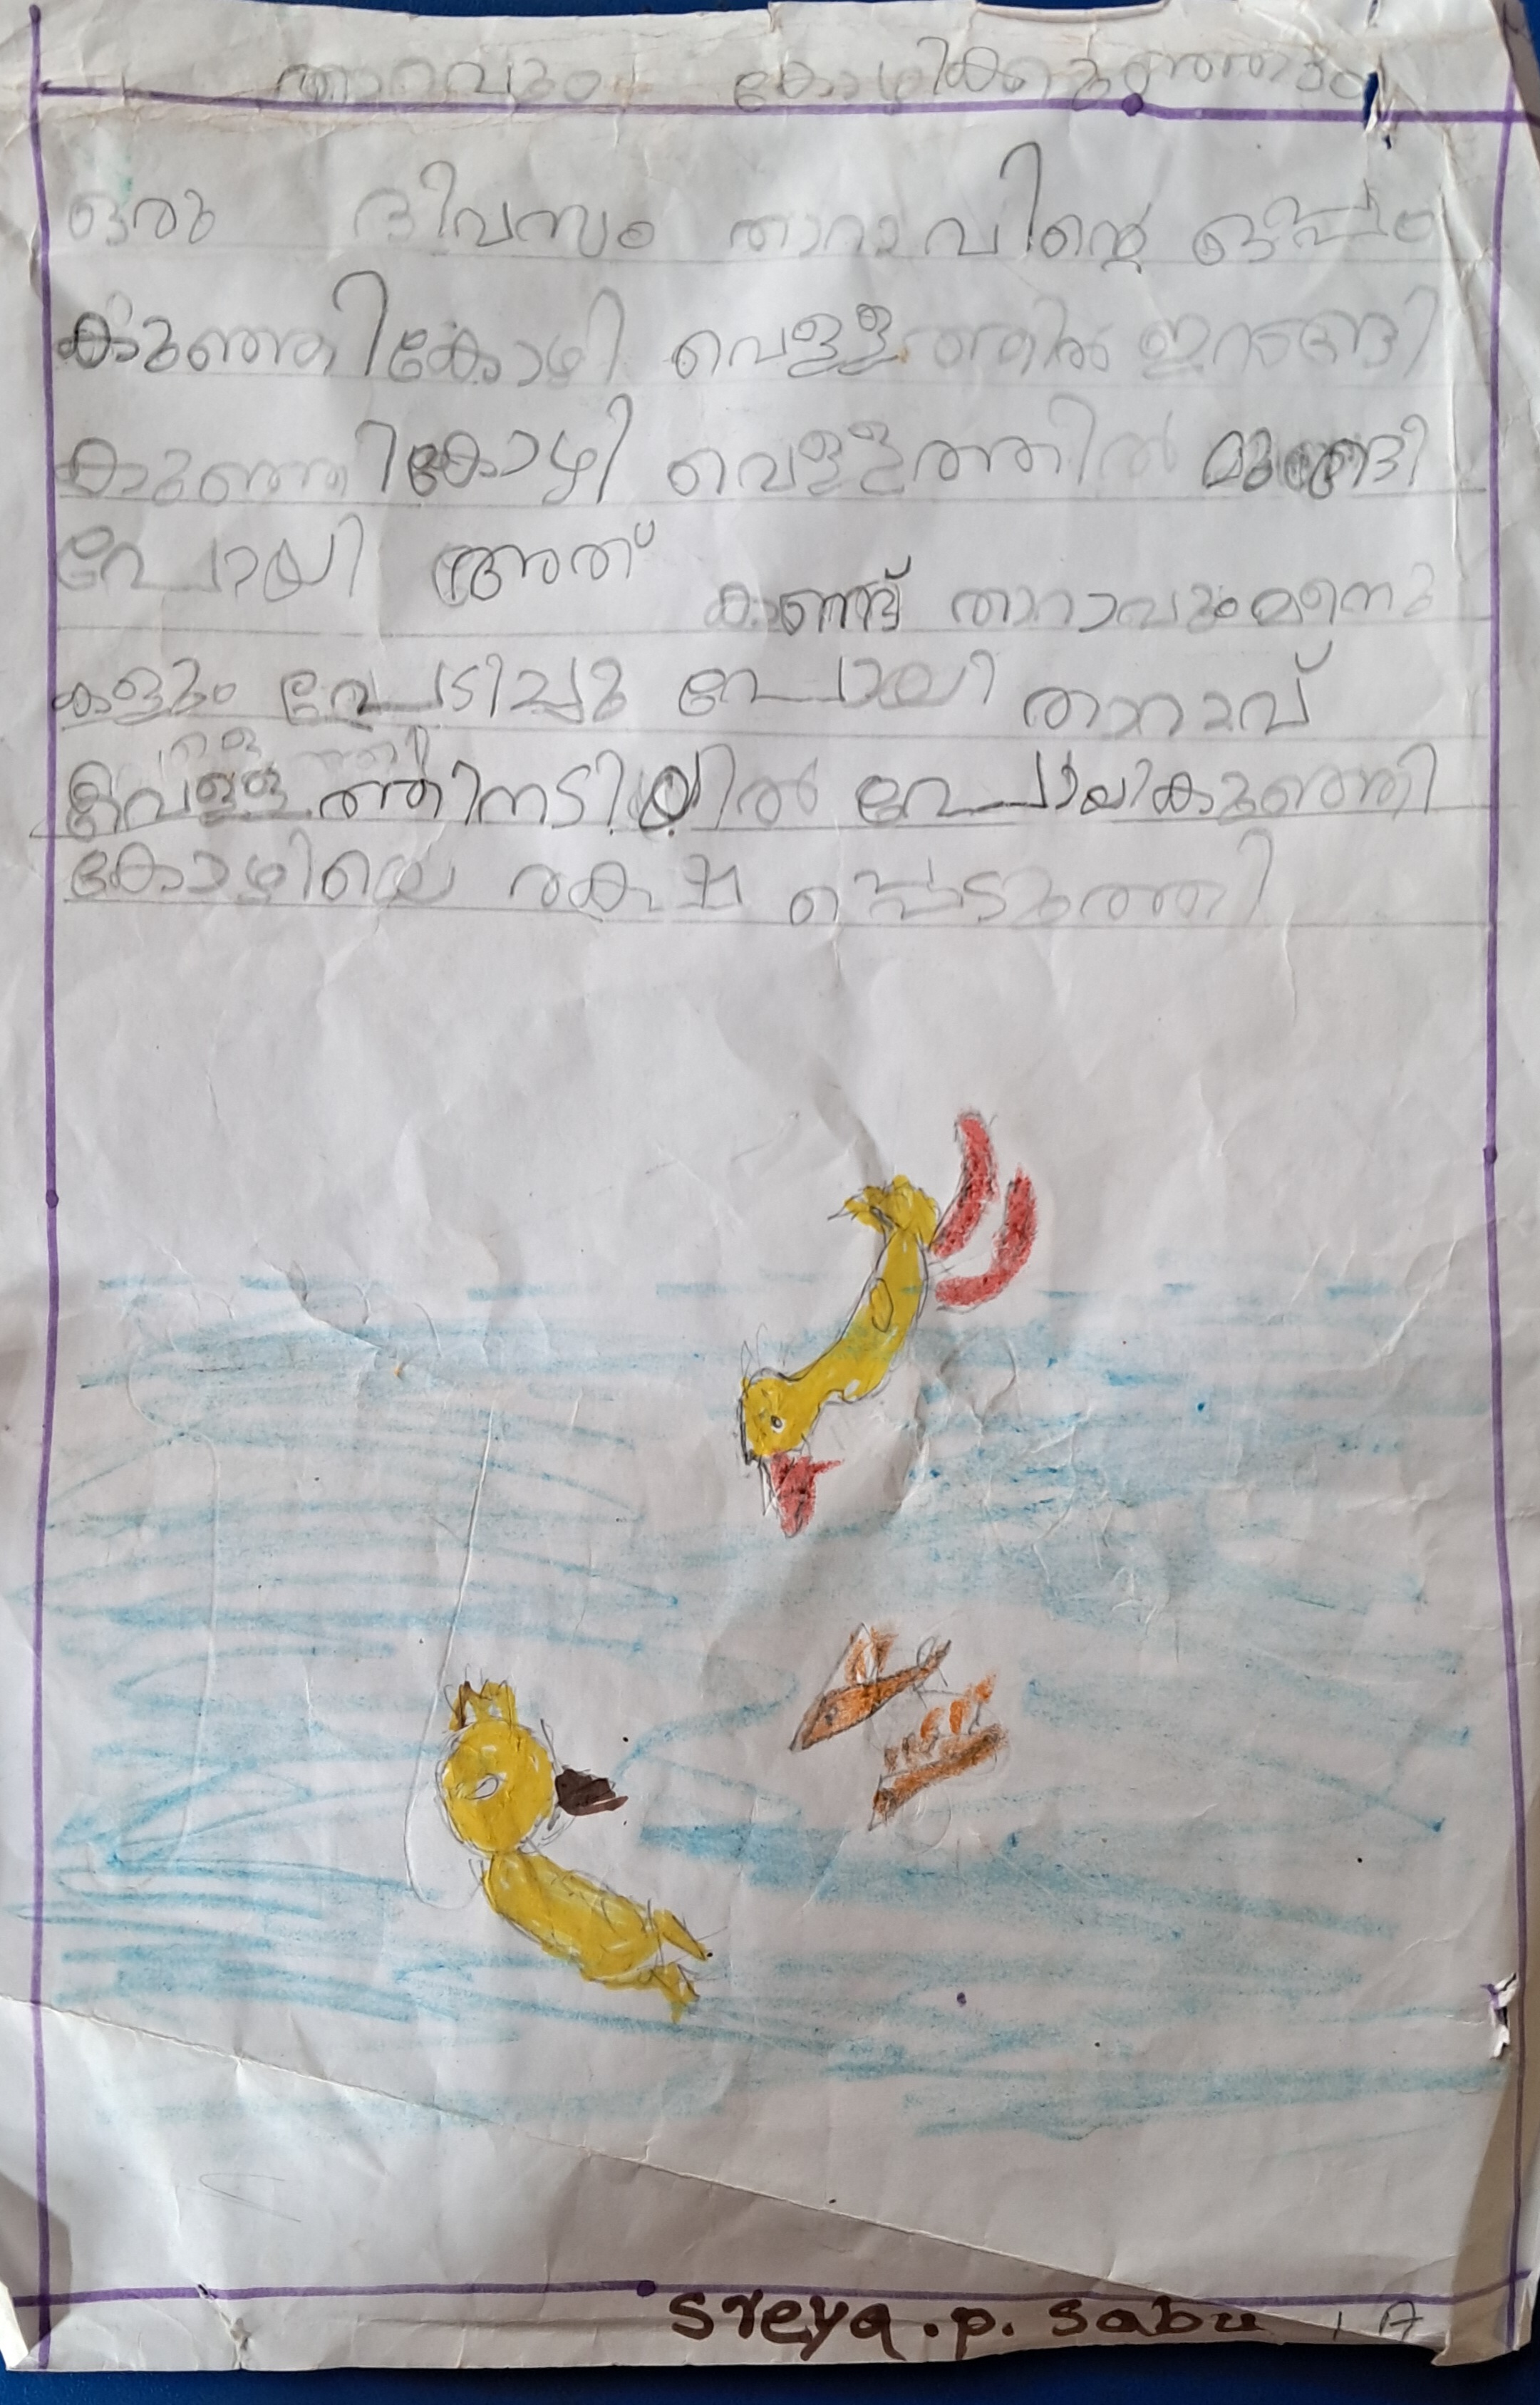 താറവും കോഴിക്കുഞ്ഞും
ഒരു ദിവസം താറാവിന്റെ ഒപ്പം
കുഞ്ഞികോഴി വെള്ളത്തിൽ ഇറങ്ങി
കുഞ്ഞികോഴി വെള്ളത്തിൽ മുങ്ങി
പോയി അത് കണ്ട് താറാവും മീനു
കളും പേടിച്ചു പോയി താറാവ്
വെള്ളത്തിനടിയിൽ പോയി കുഞ്ഞി
കോഴിയെ രക്ഷപ്പെടുത്തി
sreya.p.sabu 1 A